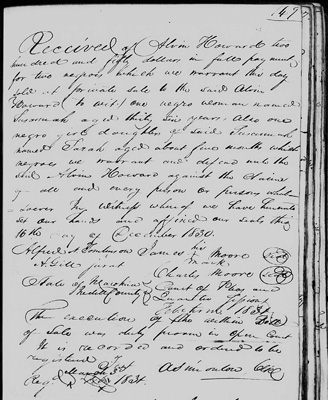 149
Received of Alvin Howard two
hundred and fifty dollars in full payment
for two negroes which we warrant this day
sold at private sale to the said Alvin
Howard (to wit) one negro woman named
Susannah aged thirty six years also one
negro girl daughter of said Susannah
named Sarah aged about five months which
negroes we warrant and defend unto the
said Alvin Howard against the claim
of all and every person or persons what
soever In witness whereof we have hereunto
set our hands and affixed our seals this
16th day of December 1830.
Alfred Tomlinson James his Moore Seal
mark
A. Gill jurat Charles Moore Seal
State of
Iredell County Court of Pleas and
Quarter Sessions
1831
The execution of the within Bill
of Sale was duly proven in open Court
It is recorded and ordered to be
registered
March 1831
Regr